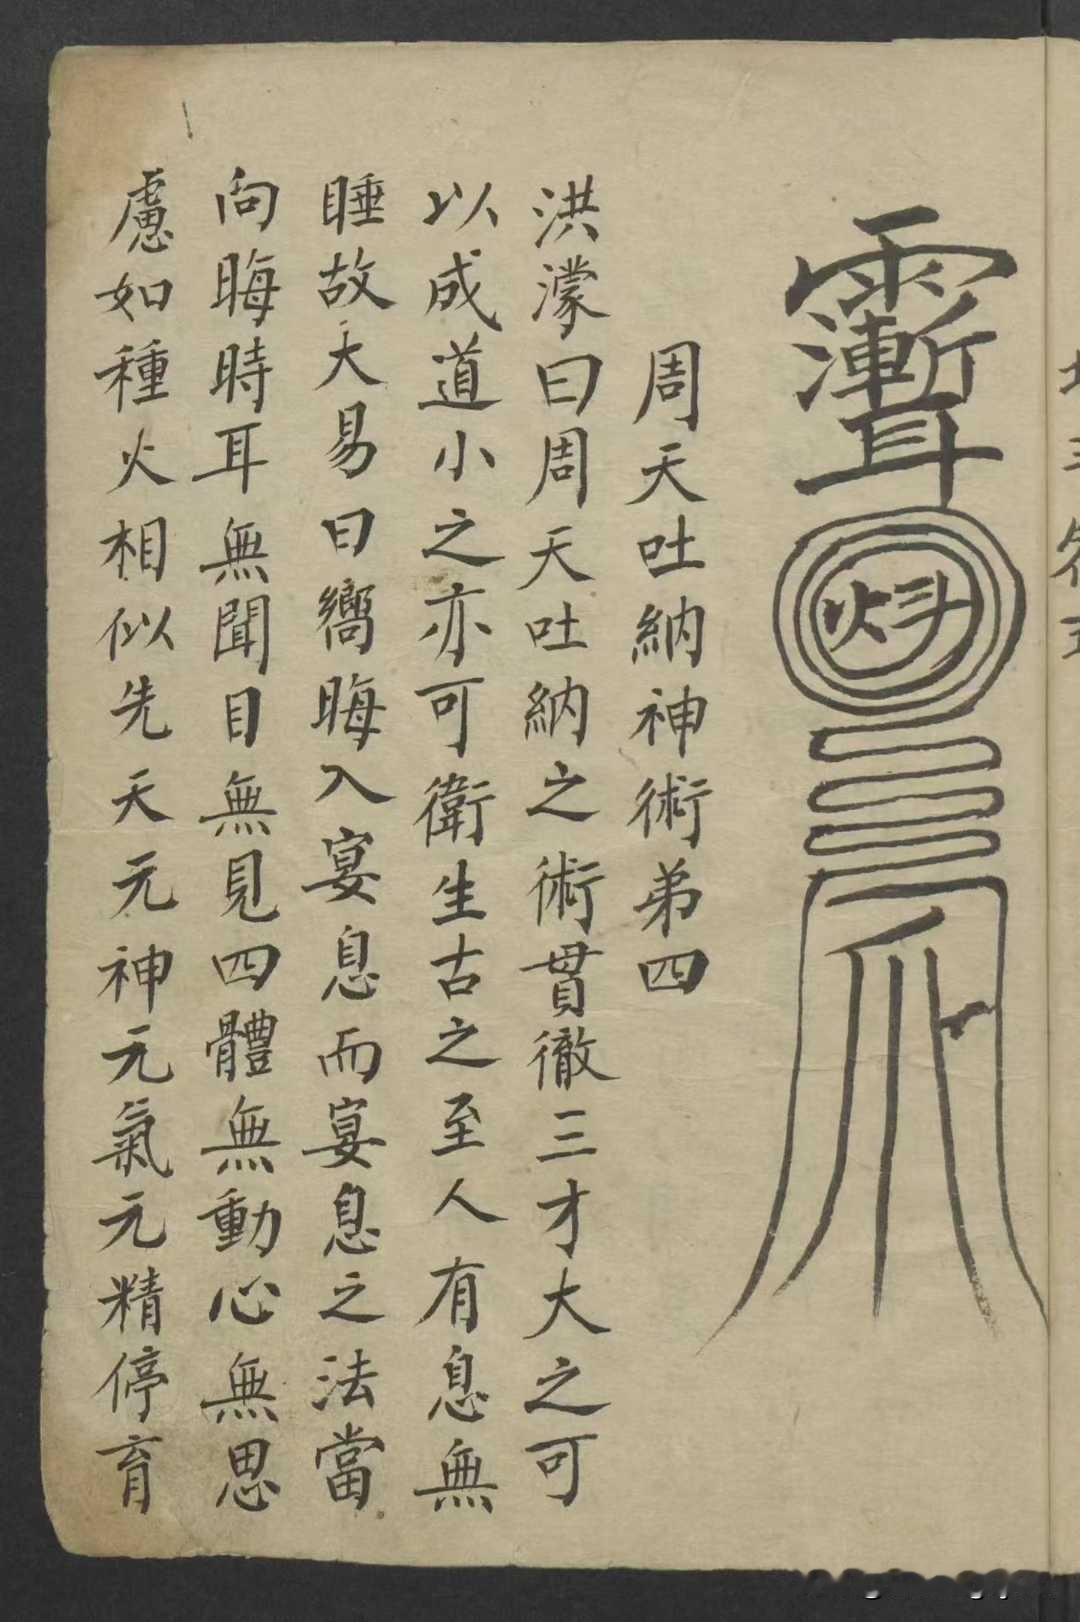 周天吐納神術弟四
洪濛曰周天吐納之術貫徹三才大之可
以成道小之亦可衛生古之至人有息無
睡故大易曰嚮晦入宴息而宴息之法當
向晦時耳無聞目無見四體無動心無思
慮如種火相似先天元神元氣元精停育